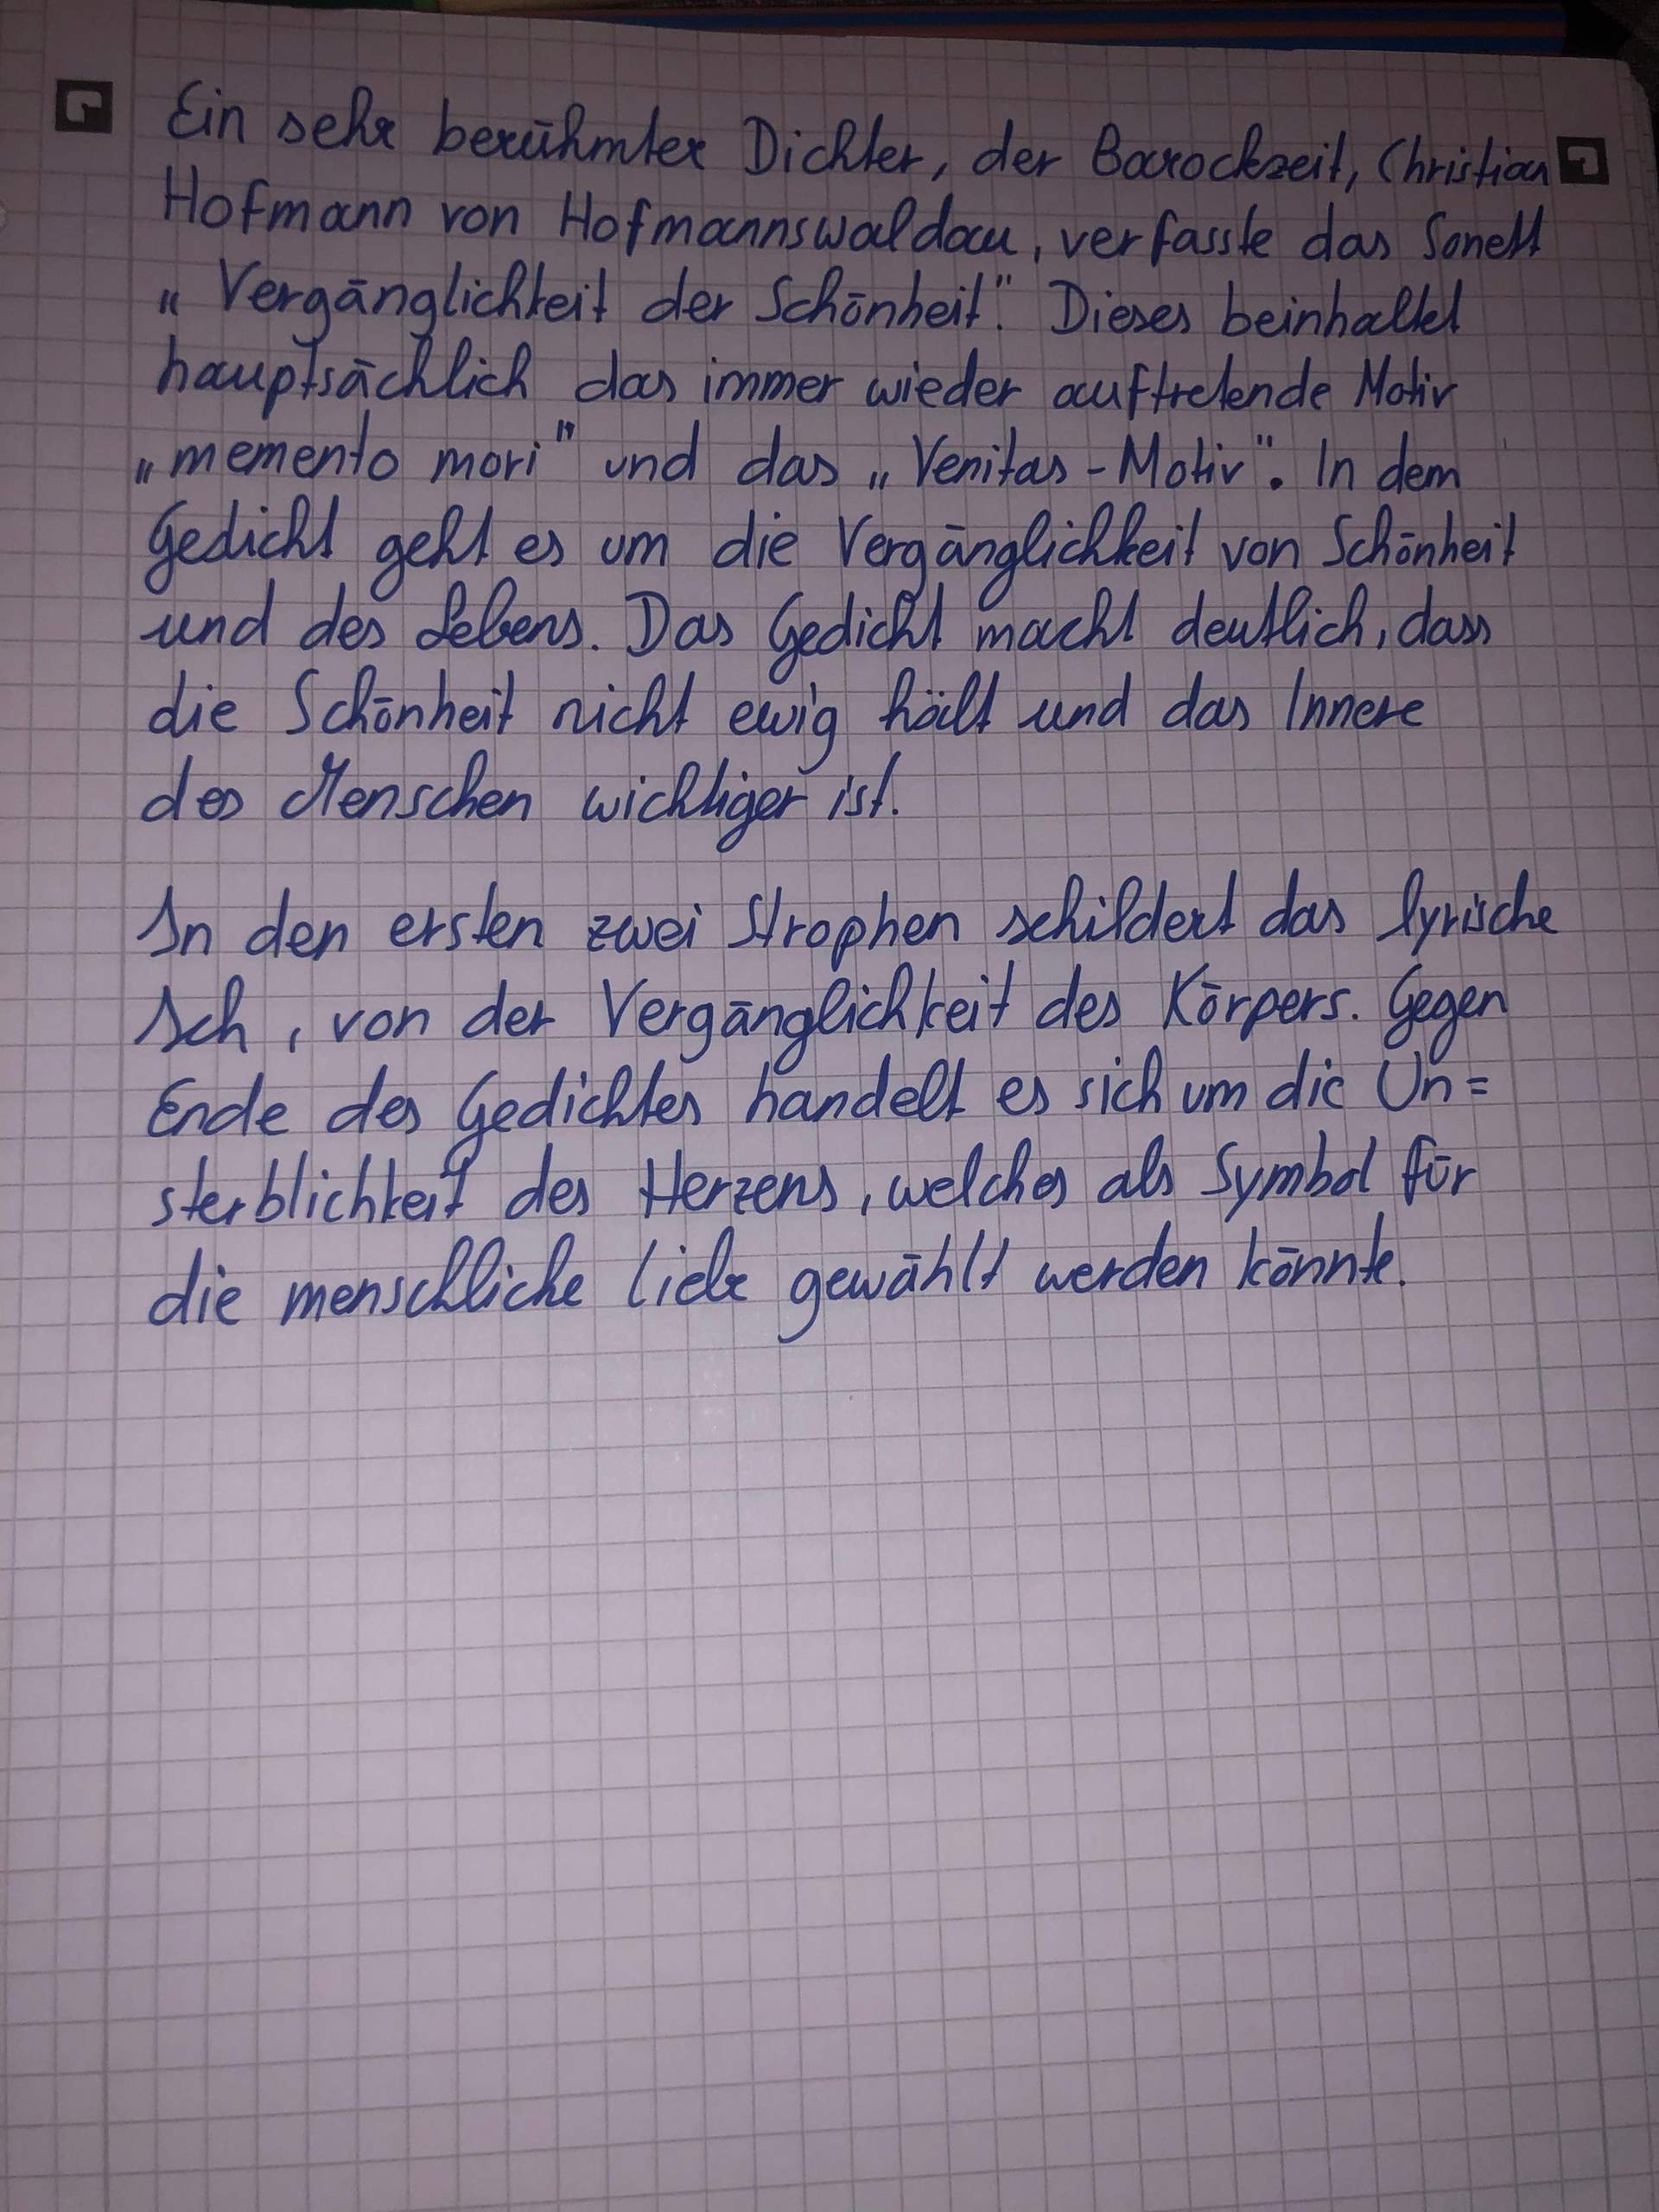 Ein sehr berühmter Dichter, der Barockzeit, Christian
Hofmann von Hofmannswaldau, verfasste das Sonett
„Vergänglichkeit der Schönheit". Dieses beinhaltet
hauptsächlich das immer wieder auftretende Motiv
„memento mori" und das „Venitas-Motiv". In dem
Gedicht geht es um die Vergänglichkeit von Schönheit
und des Lebens. Das Gedicht macht deutlich, dass
die Schönheit nicht ewig hält und das Innere
des Menschen wichtiger ist.
In den ersten zwei Strophen schildert das lyrische
Ich, von der Vergänglichkeit des Körpers. Gegen
Ende des Gedichtes handelt es sich um die Un=
sterblichkeit des Herzens, welches als Symbol für
die menschliche Liebe gewählt werden könnte.